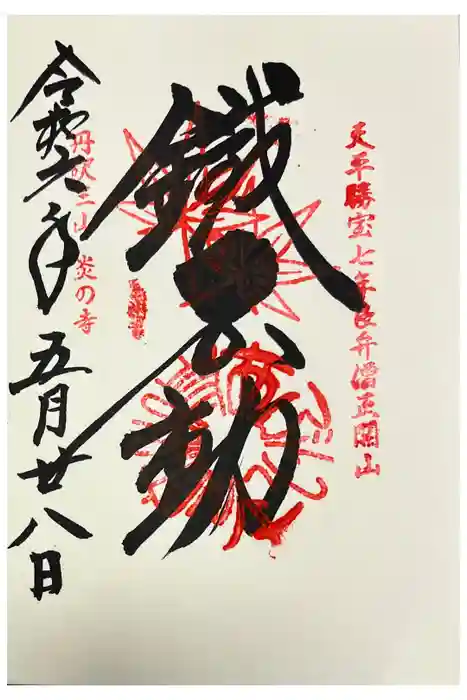 天平勝宝七年良弁僧正開山
鐵不動
丹沢大山 炎の寺
令和六年五月廿八日